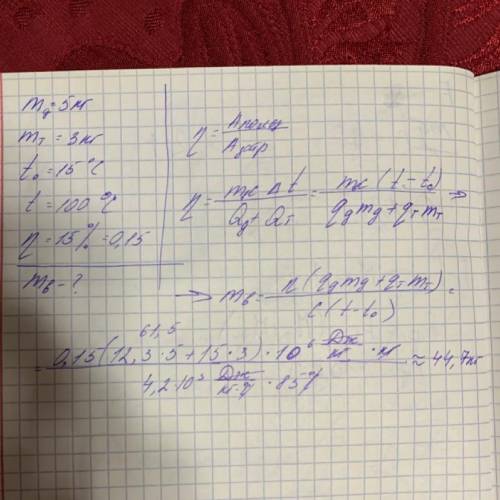 m_д = 5 кг
m_т = 3 кг
t₀ = 15 °C
t = 100 °C
η = 15% = 0,15
m_в - ?
η = Aполез / Aзатр
η = mc Δt / (Q_д + Q_т) = mc (t - t₀) / (q_д m_д + q_т m_т) →
→ m_в = η (q_д m_д + q_т m_т) / c (t - t₀) =
61,5
= 0,15 (12,3 · 5 + 15 · 3) · 10⁶ Дж/кг · кг / 4,2 · 10³ Дж/кг·°C · 85 °C ≈ 44,7 кг